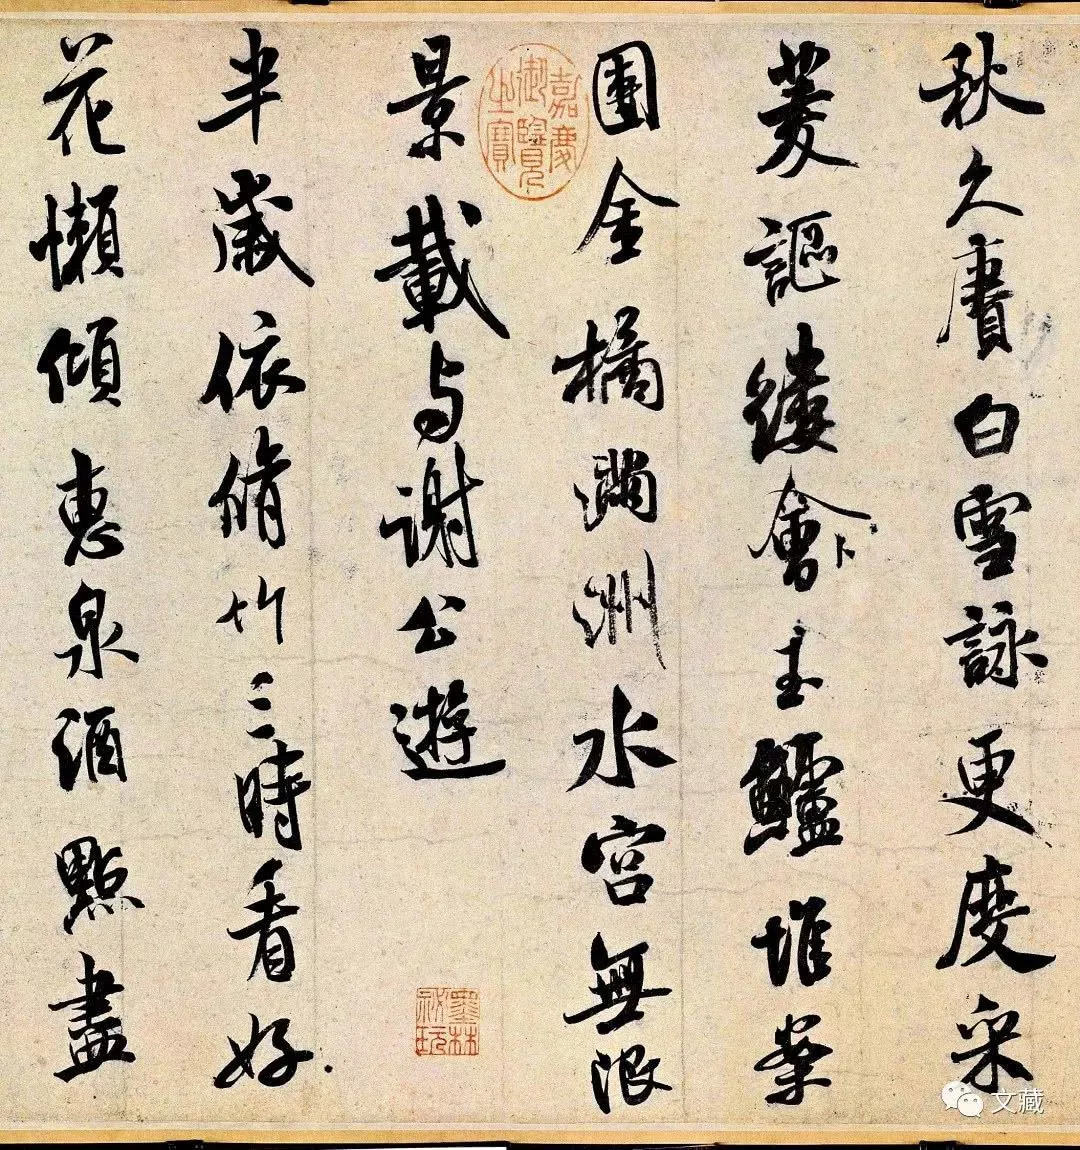 秋久賡白雪詠更度采
菱謳縷會卜玉鱸堆案
團金橘滿洲水宮無限
景載与謝公遊
半歲依脩竹三時看好
花懶傾惠泉酒點盡
嘉慶御覽之寶
墨林秘玩
文藏